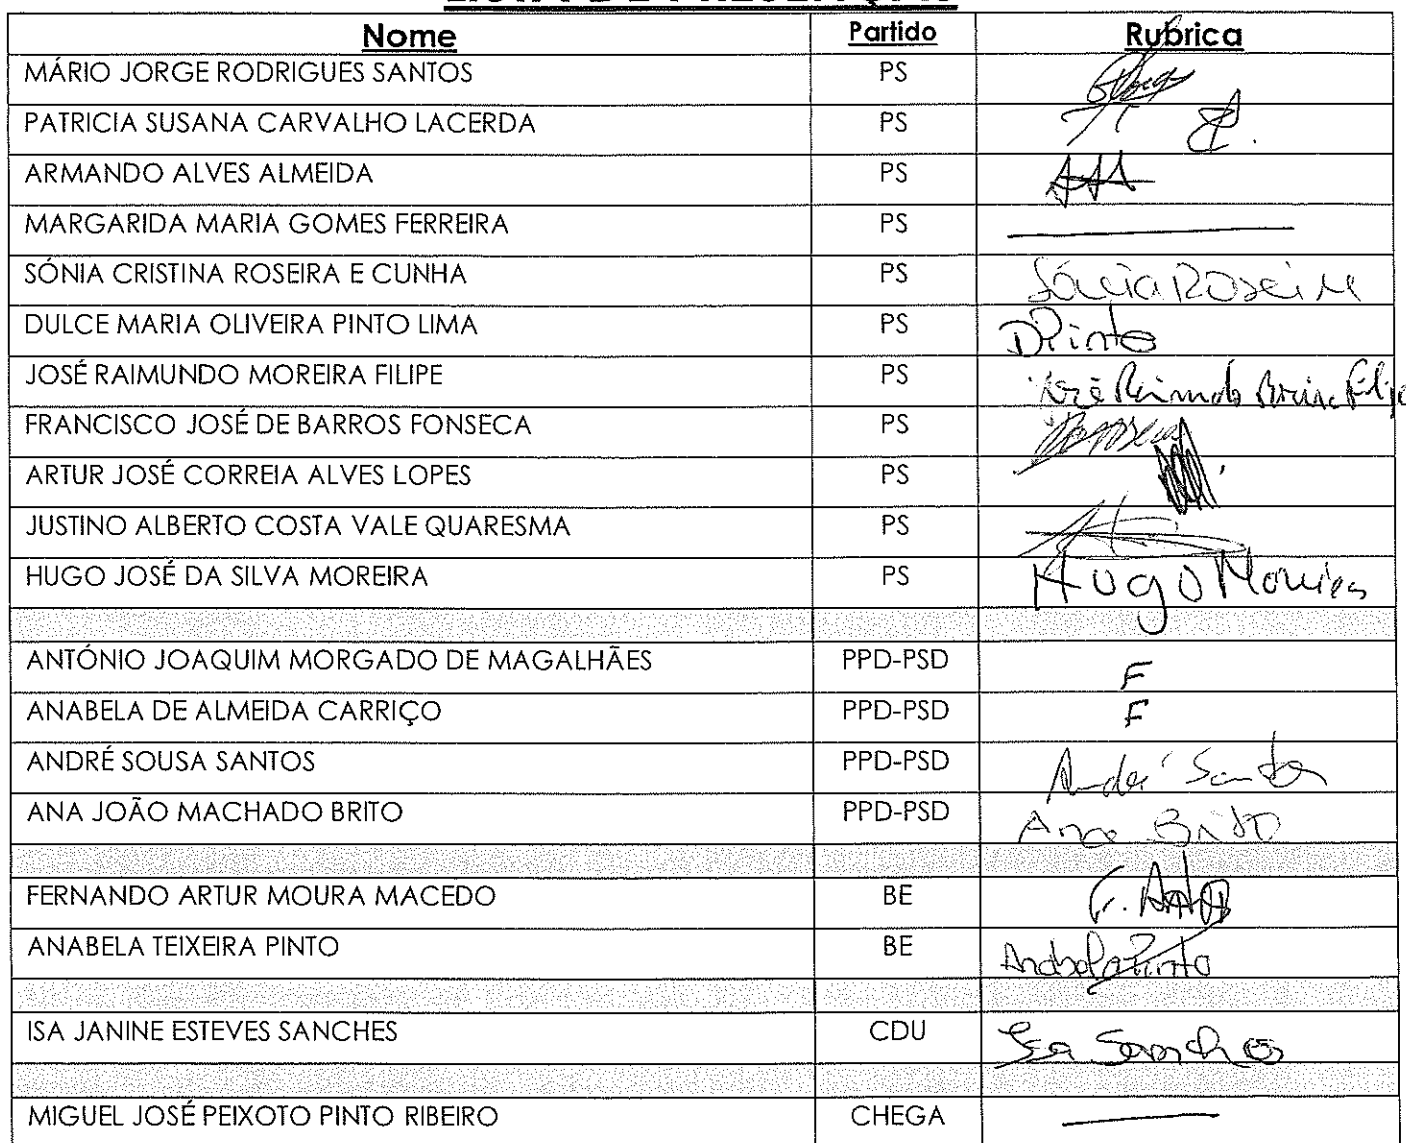 Nome Partido Rubrica
MÁRIO JORGE RODRIGUES SANTOS PS
PATRICIA SUSANA CARVALHO LACERDA PS
ARMANDO ALVES ALMEIDA PS AAA
MARGARIDA MARIA GOMES FERREIRA PS
SÓNIA CRISTINA ROSEIRA E CUNHA PS Sónia Roseira
DULCE MARIA OLIVEIRA PINTO LIMA PS DPinto
JOSÉ RAIMUNDO MOREIRA FILIPE PS José Raimundo Filipe
FRANCISCO JOSÉ DE BARROS FONSECA PS
ARTUR JOSÉ CORREIA ALVES LOPES PS
JUSTINO ALBERTO COSTA VALE QUARESMA PS
HUGO JOSÉ DA SILVA MOREIRA PS Hugo Moreira
ANTÓNIO JOAQUIM MORGADO DE MAGALHÃES PPD-PSD F
ANABELA DE ALMEIDA CARRIÇO PPD-PSD F
ANDRÉ SOUSA SANTOS PPD-PSD André Santos
ANA JOÃO MACHADO BRITO PPD-PSD Ana Brito
FERNANDO ARTUR MOURA MACEDO BE
ANABELA TEIXEIRA PINTO BE Anabela Pinto
ISA JANINE ESTEVES SANCHES CDU Isa Sanches
MIGUEL JOSÉ PEIXOTO PINTO RIBEIRO CHEGA